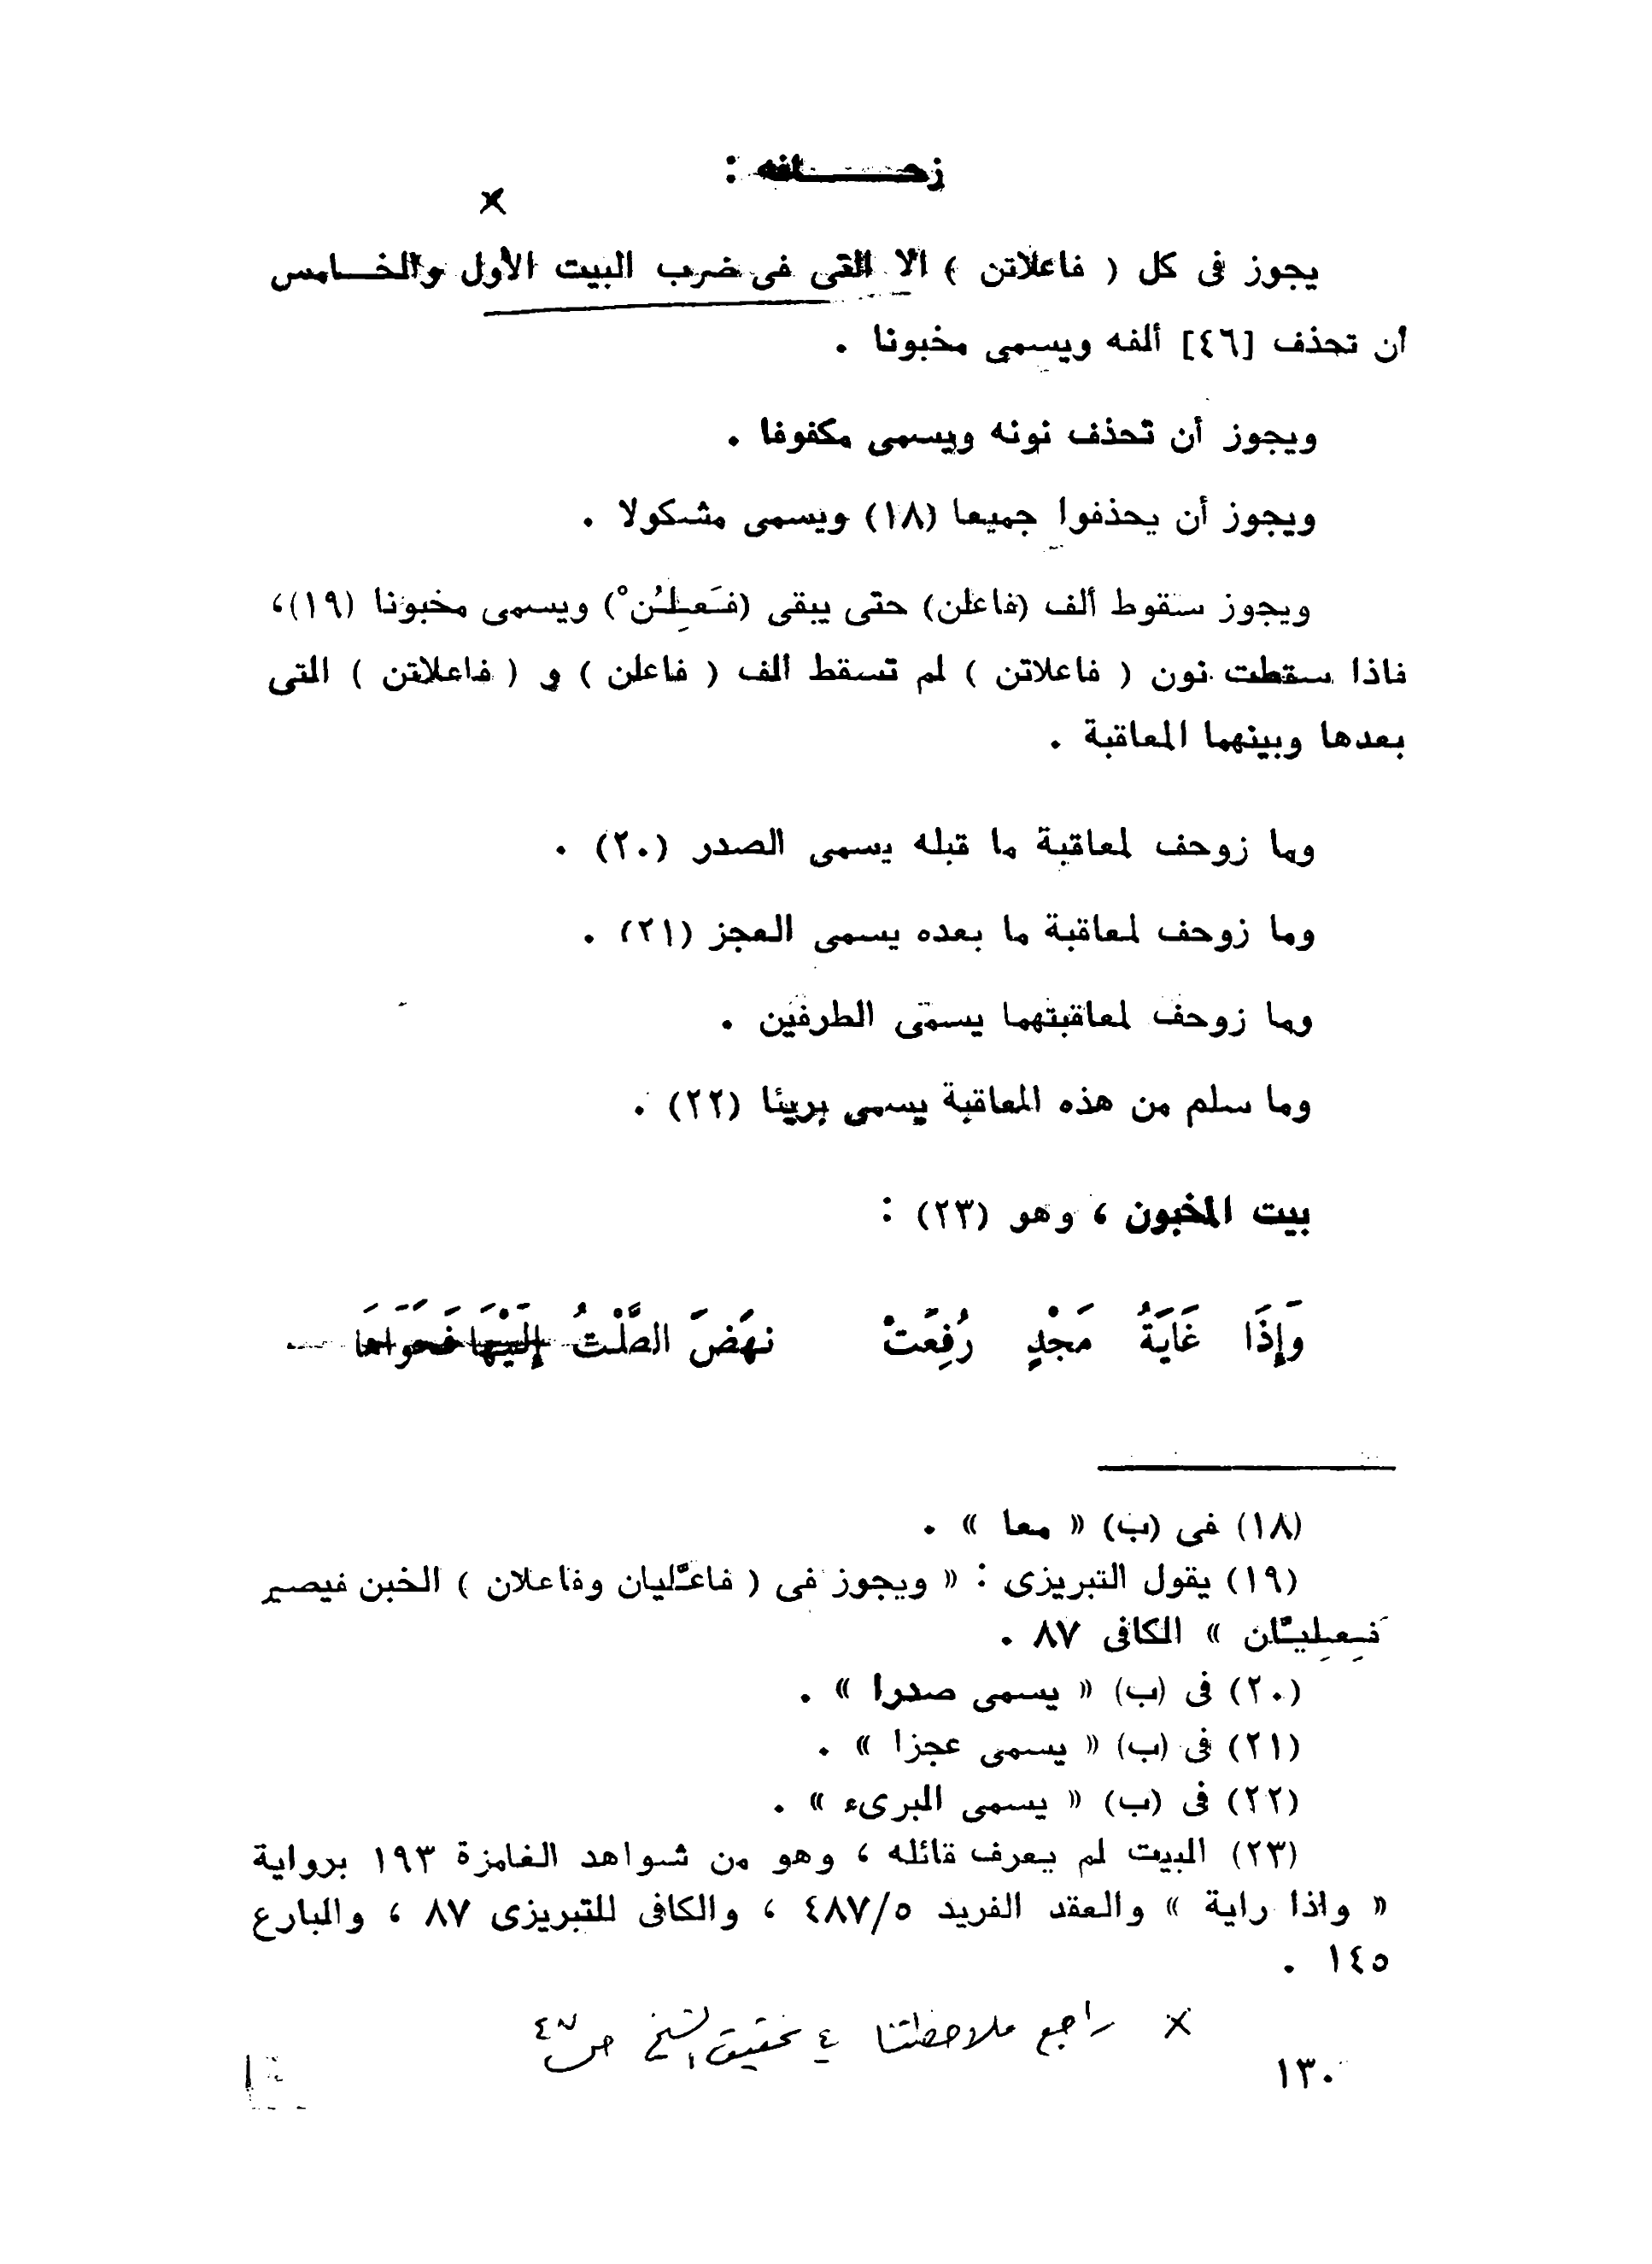 زحـــــافه :
×
يجوز فى كل ( فاعلاتن ) الا التى فى ضرب البيت الأول والخــامس
أن تحذف [٤٦] ألفه ويسمى مخبونا .
ويجوز أن تحذف نونه ويسمى مكفوفا .
ويجوز أن يحذفوا جميعا (١٨) ويسمى مشكولا .
ويجوز سقوط ألف (فاعلن) حتى يبقى (فَعِلُنْ) ويسمى مخبونا (١٩)،
فاذا سقطت نون ( فاعلاتن ) لم تسقط ألف ( فاعلن ) و ( فاعلاتن ) التى
بعدها وبينهما المعاقبة .
وما زوحف لمعاقبة ما قبله يسمى الصدر (٢٠) .
وما زوحف لمعاقبة ما بعده يسمى العجز (٢١) .
وما زوحف لمعاقبتهما يسمى الطرفين .
وما سلم من هذه المعاقبة يسمى بريئا (٢٢) .
بيت المخبون ، وهو (٢٣) :
وَإِذَا غَايَةُ مَجْدٍ رُفِعَتْ نهَضَ الصَّلْتُ إِلَيْهَا فَحَوَاهَا
(١٨) فى (ب) « معا » .
(١٩) يقول التبريزى : « ويجوز فى ( فاعلّيان وفاعلان ) الخبن فيصير
فَعِلِيّان » الكافى ٨٧ .
(٢٠) فى (ب) « يسمى صدرا » .
(٢١) فى (ب) « يسمى عجزا » .
(٢٢) فى (ب) « يسمى البرىء » .
(٢٣) البيت لم يعرف قائله ، وهو من شواهد الغامزة ١٩٣ برواية
« واذا راية » والعقد الفريد ٤٨٧/٥ ، والكافى للتبريزى ٨٧ ، والبارع
١٤٥ .
× راجع ملاحظتنا في تحقيق الشيخ ص
١٣٠